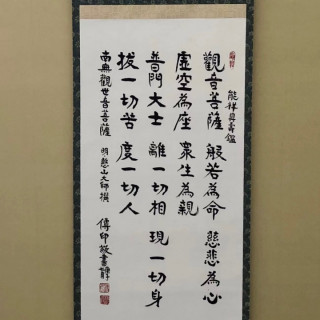 能祥具壽鑑
觀音菩薩 般若為命 慈悲為心
虛空為座 衆生為親
普門大士 離一切相 現一切身
拔一切苦 度一切人
南無觀世音菩薩 明憨山大師撰 傳印敬書